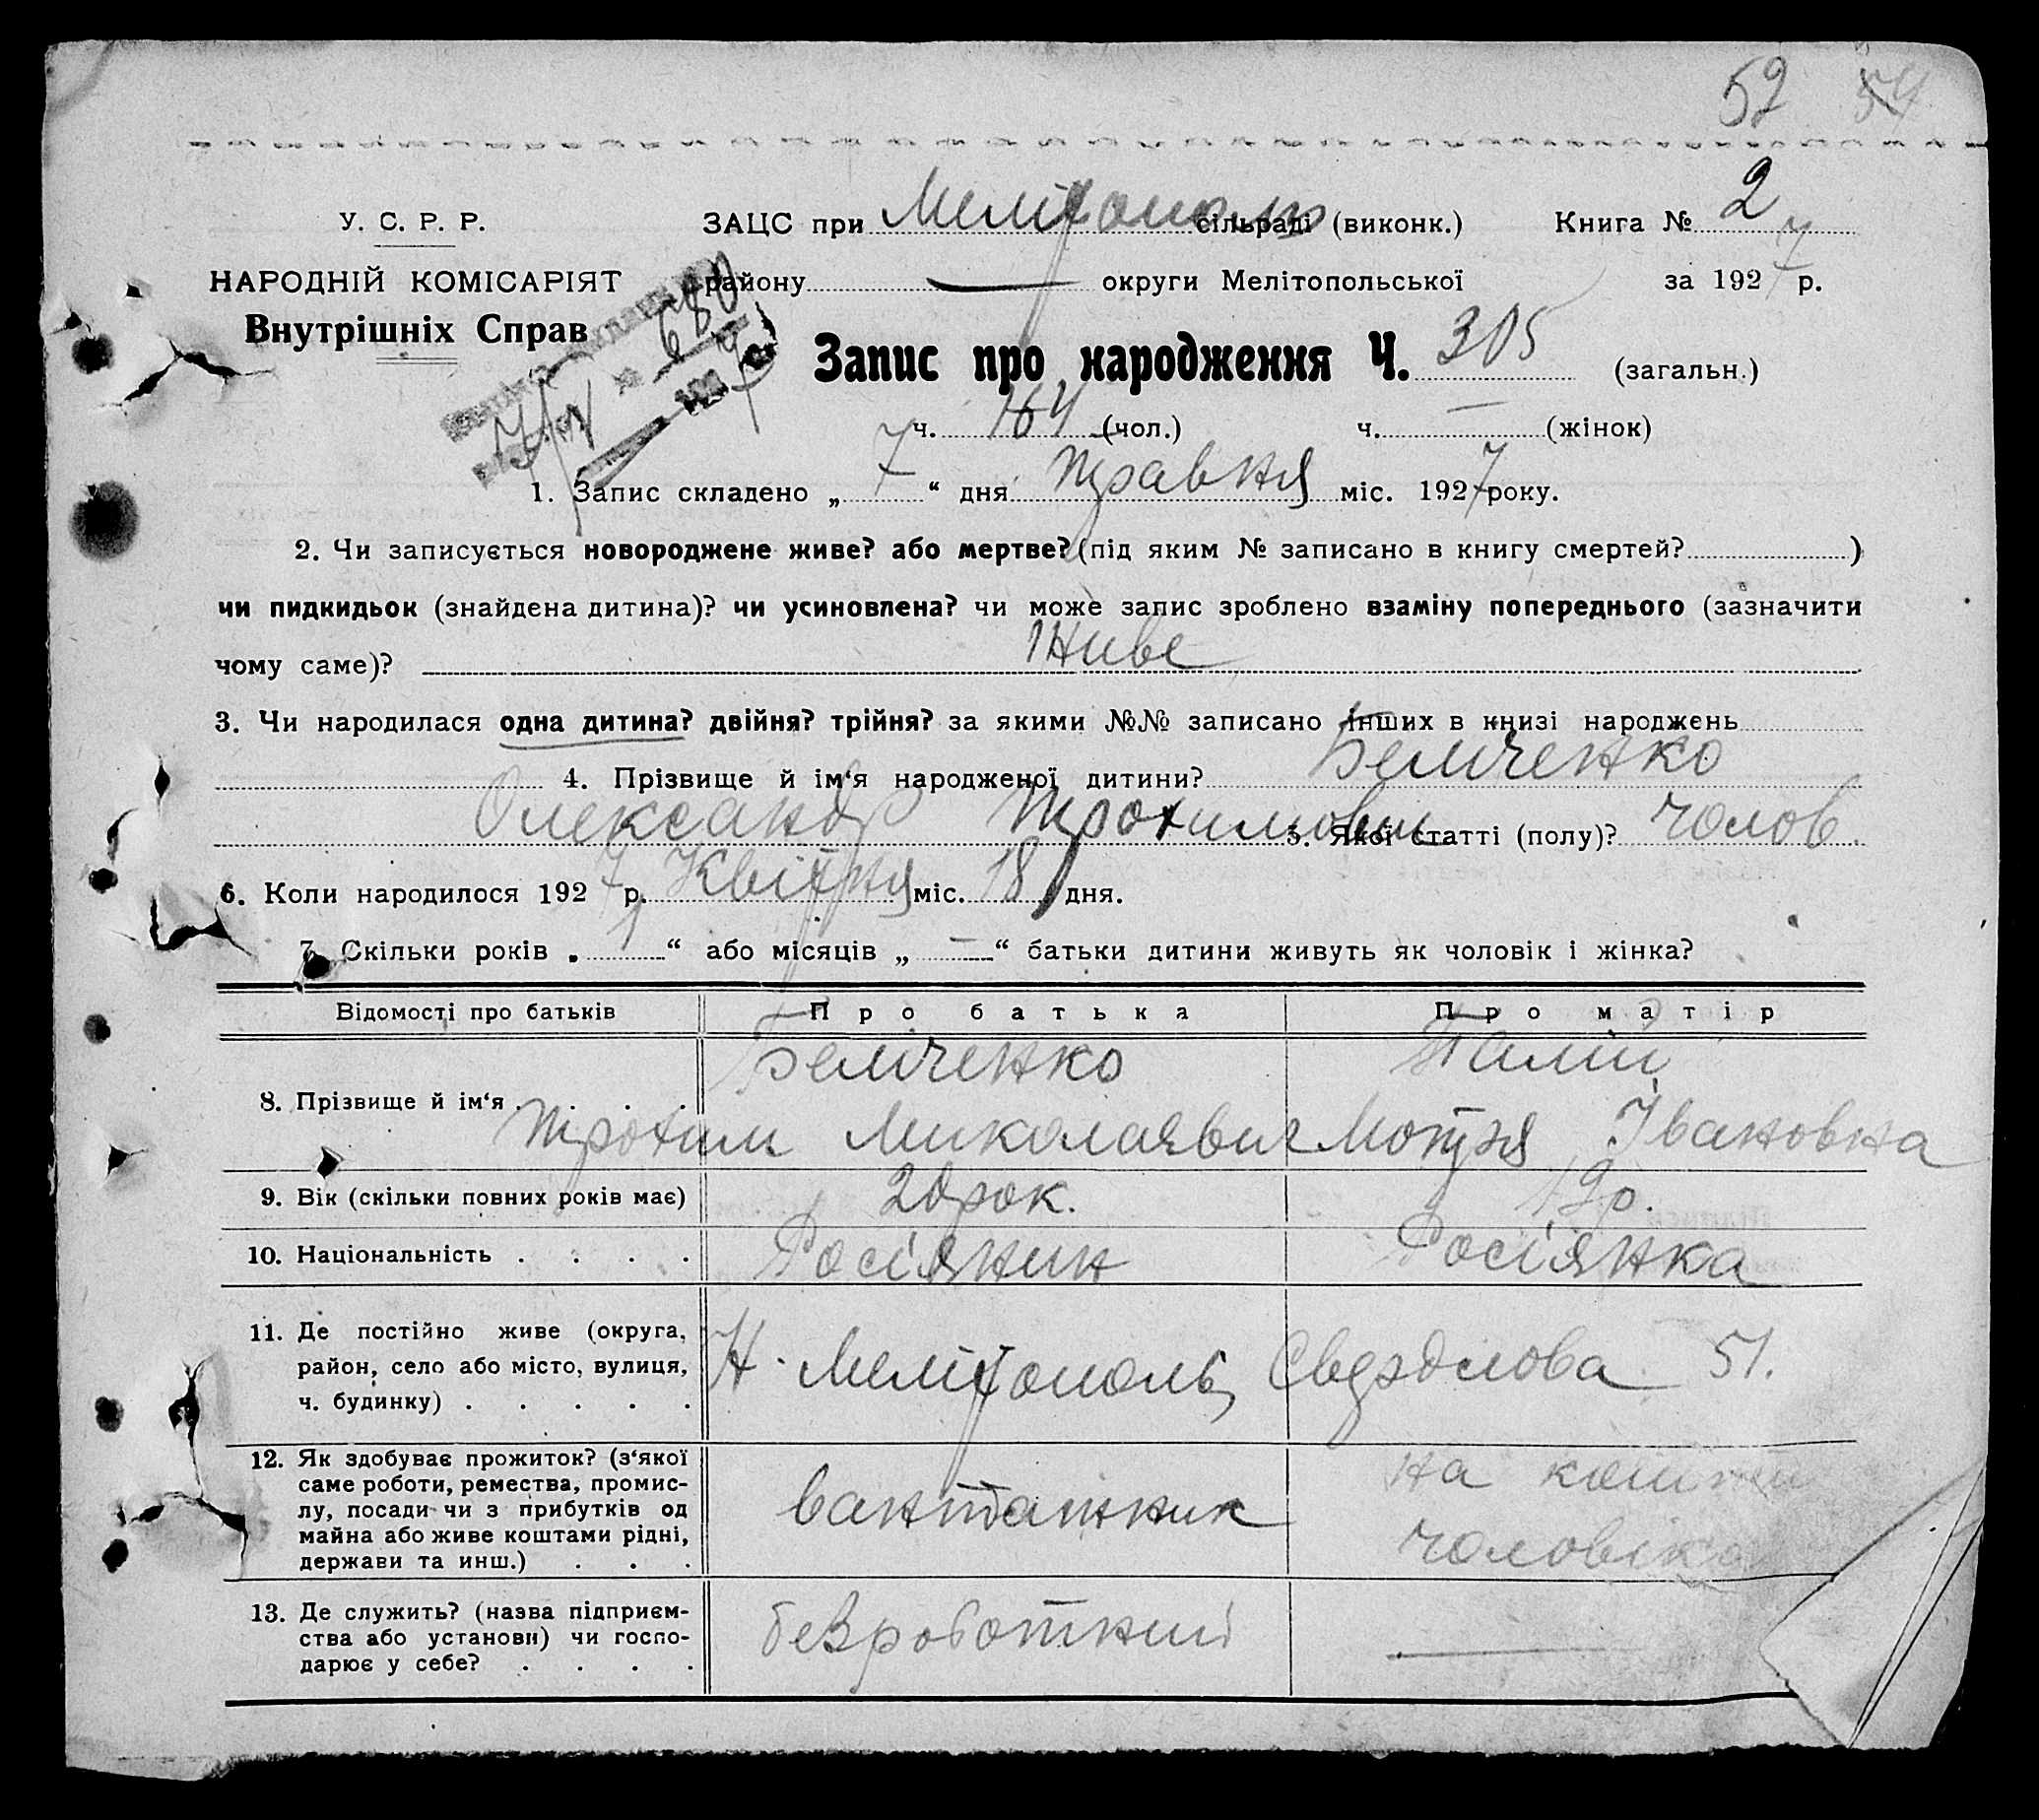 52 54
У. С. Р. Р. ЗАЦС при Мелітополь сільраді (виконк.) Книга № 2
НАРОДНІЙ КОМІСАРІЯТ району — округи Мелітопольської за 1927 р.
Внутрішніх Справ
680
Запис про народження Ч. 305 (загальн.)
ч. 164 (чол.) ч. — (жінок)
1. Запис складено „ 7 “ дня травня міс. 1927 року.
2. Чи записується новороджене живе? або мертве? (під яким № записано в книгу смертей? )
чи пидкидьок (знайдена дитина)? чи усиновлена? чи може запис зроблено взаміну попереднього (зазначити
чому саме)? Живе
3. Чи народилася одна дитина? двійня? трійня? за якими №№ записано інших в книзі народжень
4. Прізвище й ім‘я народженої дитини? Бемченко
Олександр Трохимович 5. Якої статті (полу)? чолов.
6. Коли народилося 1927 р. Квітня міс. 18 дня.
7. Скільки років „ 1 “ або місяців „ — “ батьки дитини живуть як чоловік і жінка?
Відомості про батьків Про батька Про матір
Бемченко Палій
8. Прізвище й ім‘я . . . .
Трохим Миколаявич Мотря Івановна
9. Вік (скільки повних років має) 20 рок. 19 р.
10. Національність . . . . Росіянин Росіянка
11. Де постійно живе (округа,
район, село або місто, вулиця, Н-Мелітополь, Свердлова 51.
ч. будинку) . . . . .
12. Як здобуває прожиток? (з‘якої на кошти
саме роботи, ремества, промис-
лу, посади чи з прибутків од вантажник
майна або живе коштами рідні, чоловіка
держави та инш.) . . .
13. Де служить? (назва підприєм-
ства або установи) чи госпо- безроботний —
дарює у себе? . . . .